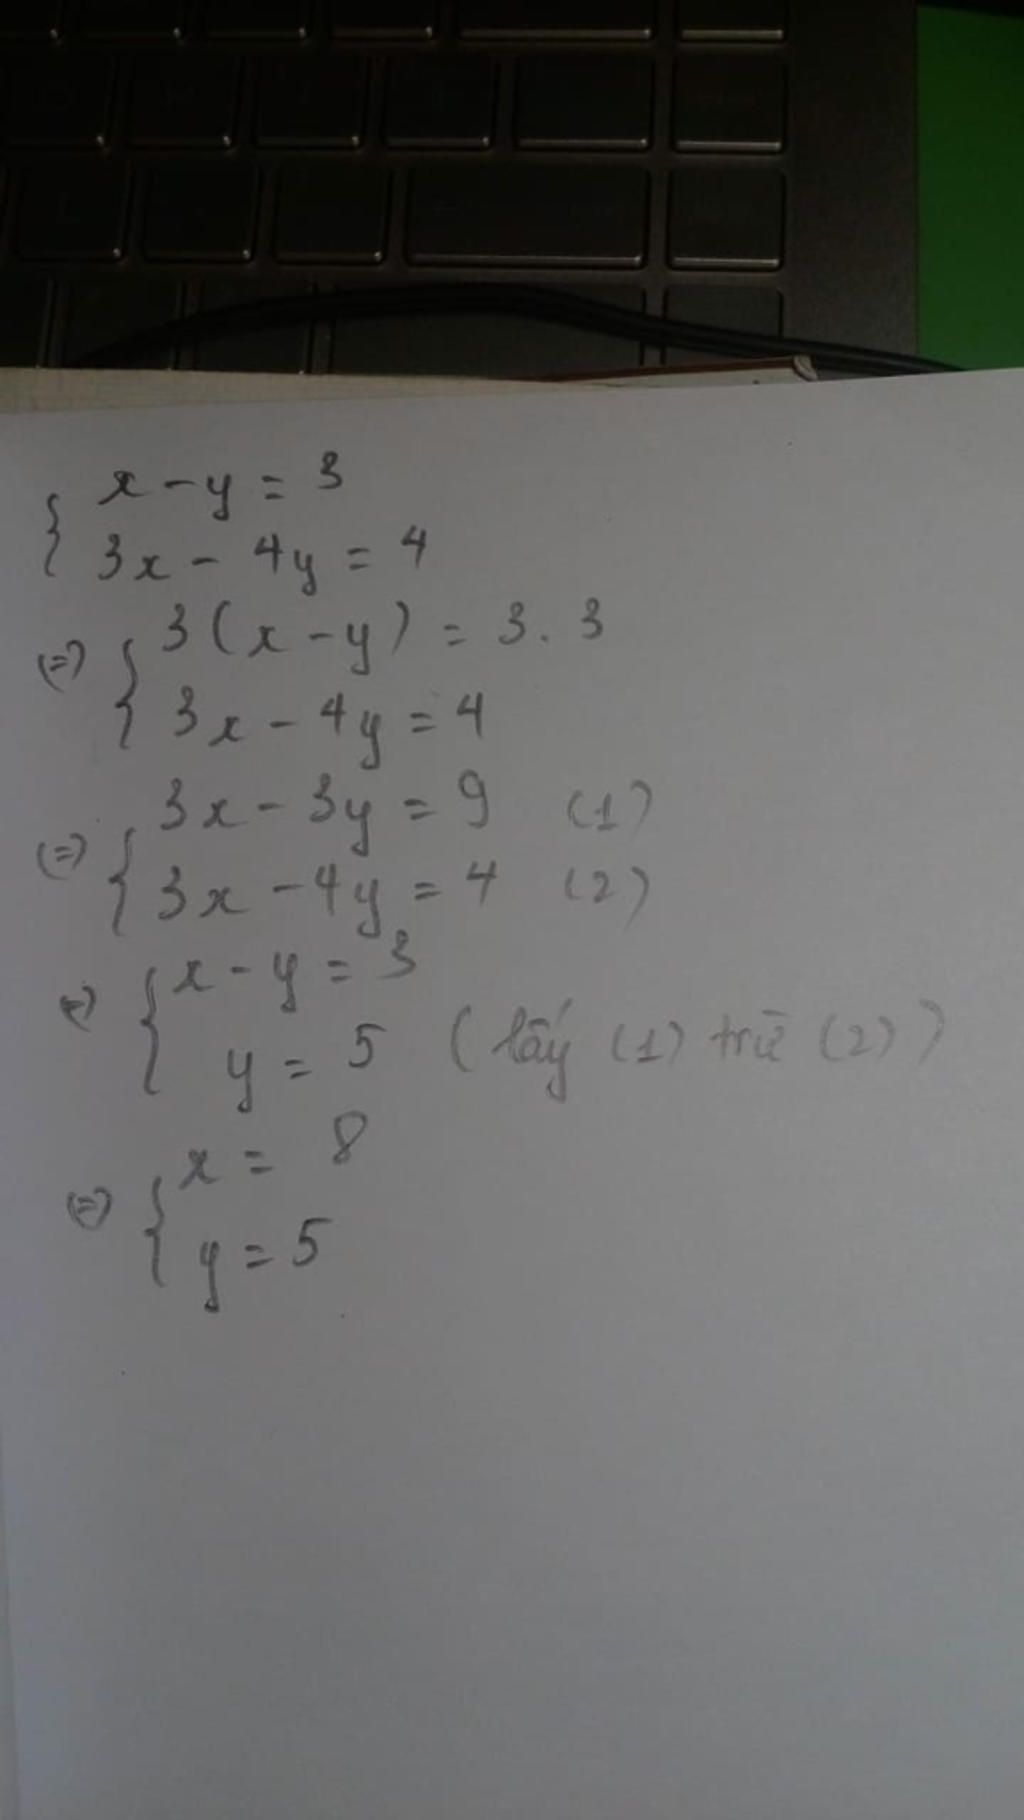 { x - y = 3
3x - 4y = 4
(=) { 3(x - y) = 3.3
3x - 4y = 4
(=) { 3x - 3y = 9 (1)
3x - 4y = 4 (2)
(=) { x - y = 3
y = 5 (lấy (1) trừ (2))
(=) { x = 8
y = 5